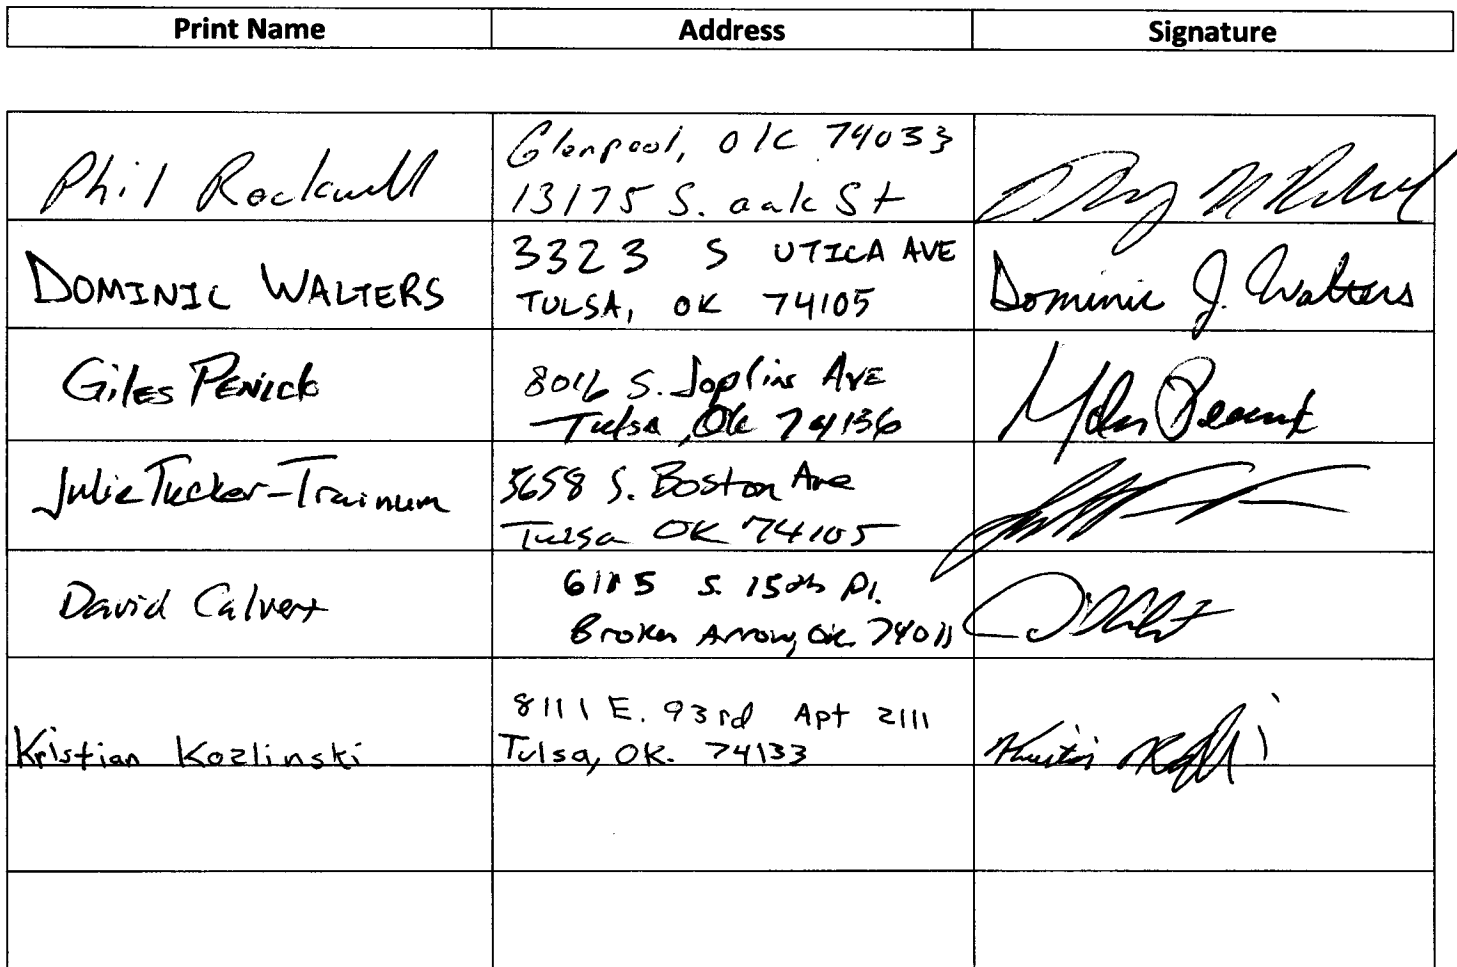 Print Name Address Signature
Phil Rockwell
Glenpool, OK 74033
13175 S. oak St
DOMINIC WALTERS
3323 S UTICA AVE
TULSA, OK 74105
Dominic J. Walters
Giles PENICK
8016 S. Joplin AVE
Tulsa, Ok 74136
Julie Tucker-Trainum
3658 S. Boston Ave
Tulsa OK 74105
David Calvert
S. 15th Pl.
Broken Arrow, OK 74011
Kristian Kozlinski
8111 E. 93rd Apt 2111
Tulsa, OK. 74133